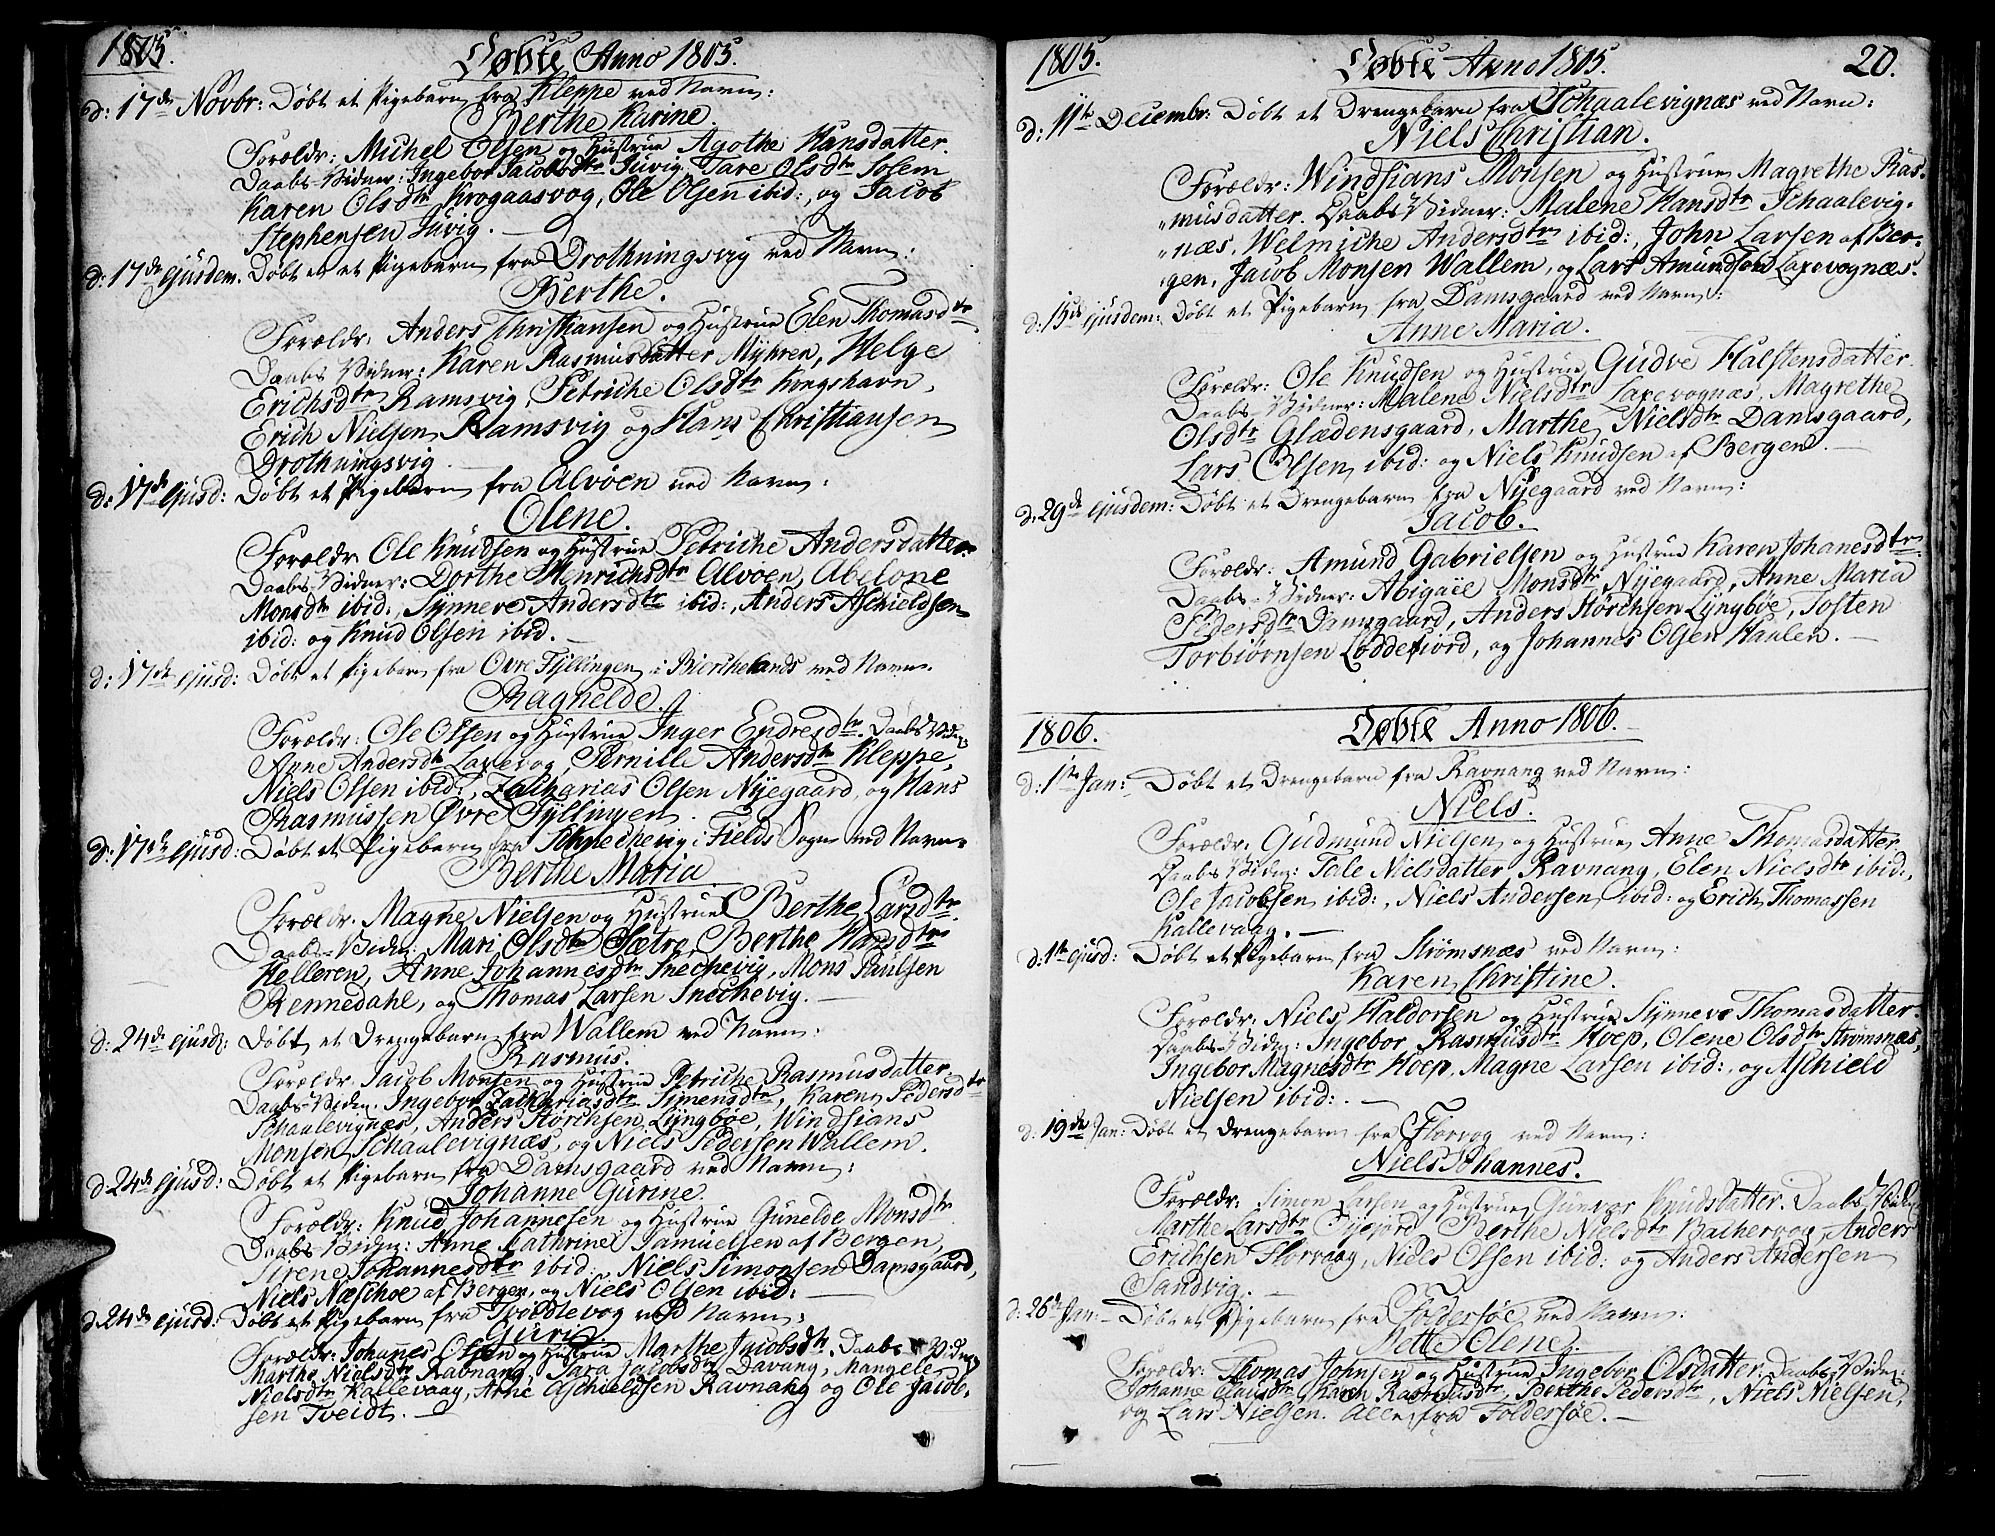 1805.
Døbte Anno 1805.
d: 17de Novbr: Døbt et Pigebarn fra Kleppe ved Navn:
Berthe Karine.
Forældr: Michel Olsen og Hustrue Agothe Hansdatter.
Daabs-Vidner: Ingebor Jacobsdtr Juvig, Tare Olsdtr Solem
Karen Olsdtr Krogaasvog, Ole Olsen ibid:, og Jacob
Stephensen Juvig.
d: 17de ejusdem. Døbt et Pigebarn fra Drothningsvig ved Navn:
Berthe.
Forældr: Anders Christiansen og Hustrue Elen Thomasdtr
Daabs Vidner: Karen Rasmusdatter Myhren, Helge
Erichsdtr Ramsvig, Petriche Olsdtr Kongshavn,
Erich Nielsen Ramsvig og Hans Christiansen
Drothningsvig.
d: 17de Ejusd: Døbt et Pigebarn fra Alvøen ved Navn:
Olene.
Forældr: Ole Knudsen og Hustrue Petriche Andersdatter
Daabs-Vidner: Dorthe Henrichsdtr Alvøen, Abelone
Monsdtr ibid:, Synneve Andersdtr ibid:, Anders Aschieldsen
ibid: og Knud Olsen ibid.
d: 17de ejusd: Døbt et Pigebarn fra Øvre Fyllingen i Bierchelands ved Navn:
Ragnelde.
Forældr: Ole Olsen og Hustrue Inger Endresdtr. Daabs Vidn:
Anne Andersdtr Laxevog, Pernille Andersdtr Kleppe,
Niels Olsen ibid:, Zacharias Olsen Nyegaard, og Hans
Rasmussen Øvre Fyllingen.
d: 17de ejusd: Døbt et Pigebarn fra Schnechevig i Fields Sogn ved Navn:
Berthe Maria
Forældr: Magne Nielsen og Hustrue Berthe Larsdtr.
Daabs-Vidn: Mari Olsdtr Sætre, Berthe Hansdtr
Helleren, Anne Johannesdtr Snechevig, Mons Paulsen
Rennedahl, og Thomas Larsen Snechevig.
d: 24de ejusd: Døbt et Drengebarn fra Wallem ved Navn:
Rasmus.
Forældr: Jacob Monsen og Hustrue Petriche Rasmusdatter
Daabs-Vidn: Ingebor Zachariasdtr Simensdtr, Karen Pedersdtr
Schaalevignæs, Anders Störchsen Lyngbøe, Windsians
Monsen Schaalevignæs, og Niels Pedersen Wallem.
d: 24de ejusd: Døbt et Pigebarn fra Damsgaard ved Navn:
Johanne Gurine.
Forældr: Knud Johannesen og Hustrue Gunelde Monsdtr
Daabs-Vidn: Anne Cathrine Samuelsen af Bergen,
Sirene Johannesdtr ibid:, Niels Simonsen Damsgaard,
Niels Næschoe af Bergen, og Niels Olsen ibid:
d: 24de ejusd: Døbt et Pigebarn fra Tveidtevog ved Navn:
Guri.
Forældr: Johanes Olsen og Hustrue Marthe Jacobsdtr. Daabs Vidn:
Marthe Nielsdtr Ravnang, Sara Jacobsdtr Davang, Mangele
Nielsdtr Kallevaag, Arne Aschieldsen Ravnang og Ole Jacob-
sen Tveidt.
1805.
Døbte Anno 1805.
20.
d: 11te Decembr: Døbt et Drengebarn fra Schaalevignæs ved Navn:
Niels Christian.
Forældr: Windsians Monsen og Hustrue Magrethe Ras-
musdatter. Daabs Vidner: Malene Hansdtr Schaalevig-
næs, Welmiche Andersdtr ibid:, John Larsen af Ber-
gen, Jacob Monsen Wallem, og Lars Amundsen Laxevognæs.
d: 15de ejusdem: Døbt et Pigebarn fra Damsgaard ved Navn:
Anne Maria.
Forældr: Ole Knudsen og Hustrue Gudve Halstensdatter.
Daabs-Vidner: Malene Nielsdtr Laxevognæs, Magrethe
Olsdtr Glædensgaard, Marthe Nielsdtr Damsgaard,
Lars Olsen ibid: og Niels Knudsen af Bergen.
d: 29de ejusdem: Døbt et Drengebarn fra Nyegaard ved Navn:
Jacob.
Forældr: Amund Gabrielsen og Hustrue Karen Johanesdtr
Daabs-Vidner: Abigaie Monsdtr Nyegaard, Anne Maria
Pedersdtr Damsgaard, Anders Störchsen Lyngbøe, Tosten
Torbiörnsen Loddefiord, og Johannes Olsen Haalen.
1806.
Døbte Anno 1806.
d: 1te Jan: Døbt et Drengebarn fra Ravnang ved Navn:
Niels.
Forældr: Gudmund Nielsen og Hustrue Anne Thomasdatter
Daabs Vidn: Tale Nielsdatter Ravnang, Elen Nielsdtr ibid:,
Ole Jacobsen ibid:, Niels Andersen ibid: og Erich Thomassen
Kallevaag.
d: 1te ejusd: Døbt et Pigebarn fra Strømsnæs ved Navn:
Karen Christine.
Forældr: Niels Haldorsen og Hustrue Synneve Thomasdatter.
Daabs-Vidn: Ingebor Rasmusdtr Hoep, Olene Olsdtr Strømsnæs,
Ingebor Magnesdtr Hoep, Magne Larsen ibid:, og Aschield
Nielsen ibid:.
d: 19de Jan: Døbt et Drengebarn fra Florvog ved Navn:
Niels Johannes.
Forældr: Simon Larsen og Hustrue Gunvor Knudsdatter. Daabs Vidn:
Marthe Larsdtr Berthe Nielsdtr Bachervog, Anders
Erichsen Florvaag, Niels Olsen ibid: og Anders Andersen
Sandvig.
d: 26de Jan: Døbt et Pigebarn fra Foldersøe ved Navn:
Mette Olene.
Forældr: Thomas Johnsen og Hustrue Ingebor Olsdatter. Daabs-Vidn:
Johanne Clausdtr, Karen Rasmusdtr, Berthe Pedersdtr, Niels Nielsen,
og Lars Nielsen. Alle fra Foldersøe.